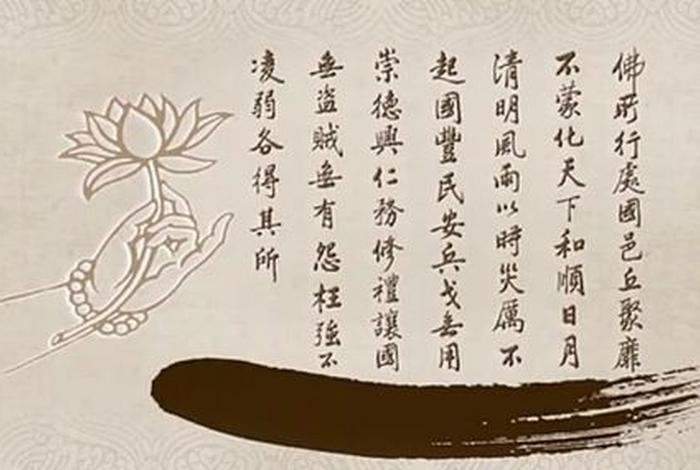 佛所行處國邑丘聚靡
不蒙化天下和順日月
清明風雨以時災厲不
起國豐民安兵戈無用
崇德興仁務修禮讓國
無盜賊無有怨枉強不
凌弱各得其所